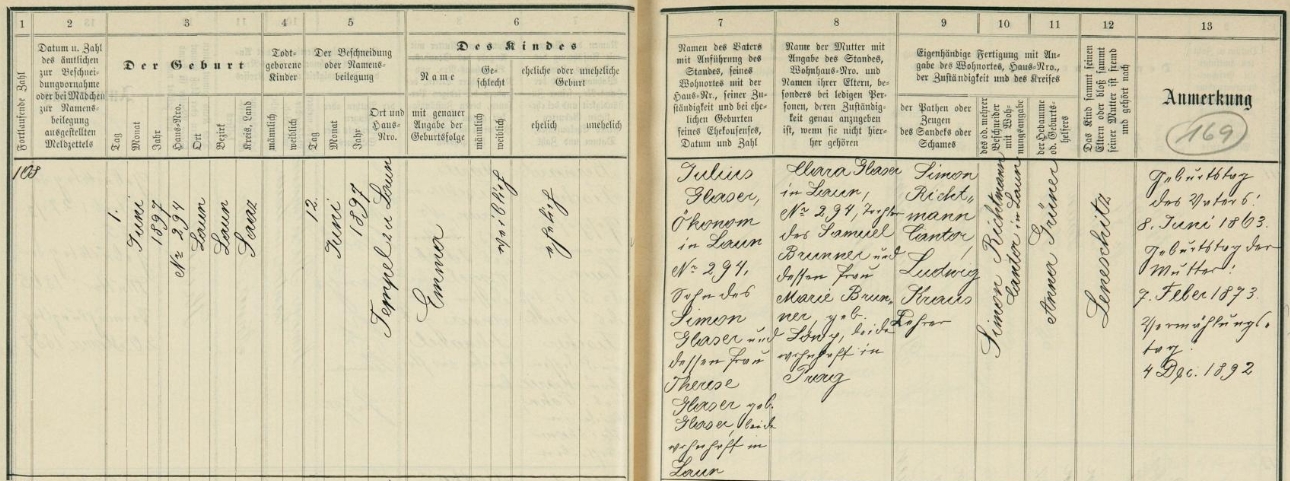 1
2
3
4
5
6
Fortlaufende Zahl
Datum u. Zahl
des ämtlichen
zur Beschnei-
dungvornahme
oder bei Mädchen
zur Namens-
beilegung
ausgestellten
Meldzettels
Der Geburt
Tag
Monat
Jahr
Haus-Nro.
Ort
Bezirk
Kreis, Land
Todt-
geborene
Kinder
männlich
weiblich
Der Beschneidung
oder Namens-
beilegung
Tag
Monat
Jahr
Ort und
Haus-
Nro.
Des Kindes
Name
mit genauer
Angabe der
Geburtsfolge
Ge-
schlecht
männlich
weiblich
eheliche oder uneheliche
Geburt
ehelich
unehelich
108
1.
Juni
1897
No 294
Laun
Laun
Saaz
12.
Juni
1897
Tempel in Laun
Emma
weiblich
ehelich
7
8
9
10
11
12
13
Namen des Vaters
mit Anführung des
Standes, seines
Wohnortes mit der
Haus-Nr., seiner Zu-
ständigkeit und bei ehe-
lichen Geburten
seines Ehekonsenses,
Datum und Zahl
Name der Mutter mit
Angabe des Standes,
Wohnhaus-Nro. und
Namen ihrer Eltern, be-
sonders bei ledigen Per-
sonen, deren Zuständig-
keit genau anzugeben
ist, wenn sie nicht hier-
her gehören
Eigenhändige Fertigung mit An-
gabe des Wohnortes, Haus-Nro.,
der Zuständigkeit und des Kreises
der Pathen oder
Zeugen
des Sandeks oder
Schames
des od. mehrer
Beschneider
mit Woh-
nungsangabe
der Hebamme
od. Geburts-
helfers
Das Kind sammt seinen
Eltern oder bloß sammt
seiner Mutter ist fremd
und gehört nach
Anmerkung
169
Julius
Glaser,
Ökonom
in Laun
No 294,
Sohn des
Simon
Glaser und
dessen Frau
Therese
Glaser geb.
Glaser, beide
wohnhaft in
Laun
Clara Glaser
in Laun,
No 294, Tochter
des Samuel
Brunner und
dessen Frau
Marie Brun-
ner, geb.
Löwy, beide
wohnhaft in
Prag
Simon
Richt-
mann
Cantor,
Ludwig
Kraus
Lehrer
Simon Richtmann
Cantor in Laun
Anna Grüner
Leneschitz
Geburtstag
des Vaters:
8. Juni 1863.
Geburtstag der
Mutter:
7. Feber 1873.
Vermählungs-
tag.
4 Dez. 1892